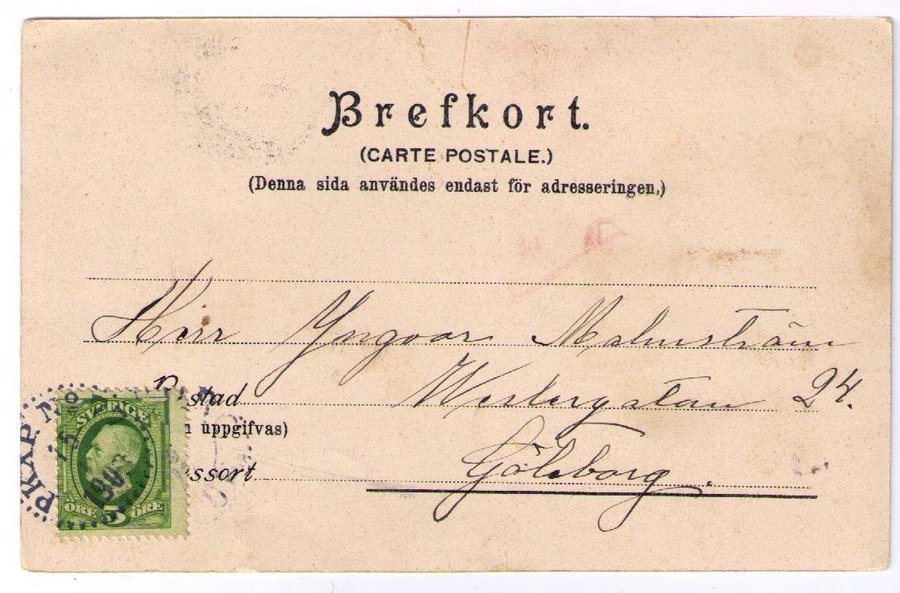 Brefkort.
(CARTE POSTALE.)
(Denna sida användes endast för adresseringen.)
Herr Yngvar Malmström
Westergatan 24.
uppgifvas)
Göteborg.
SVERIGE
5
ÖRE ÖRE
PKXP Nº